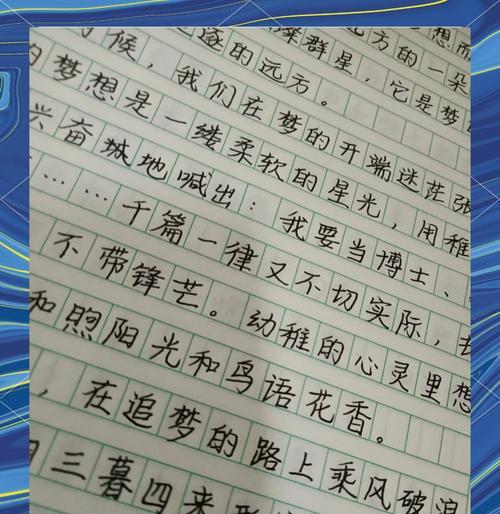 想而
方的一朵
群星，它是梦
逐的远方。
候，我们在梦的开端迷茫张
的梦想是一缕柔软的星光，用稚
兴奋城地喊出：我要当博士、
……千篇一律又不切实际，
不带锋芒。幼稚的心灵里想
和煦阳光和鸟语花香。
，在追梦的路上乘风破浪
三暮四来形